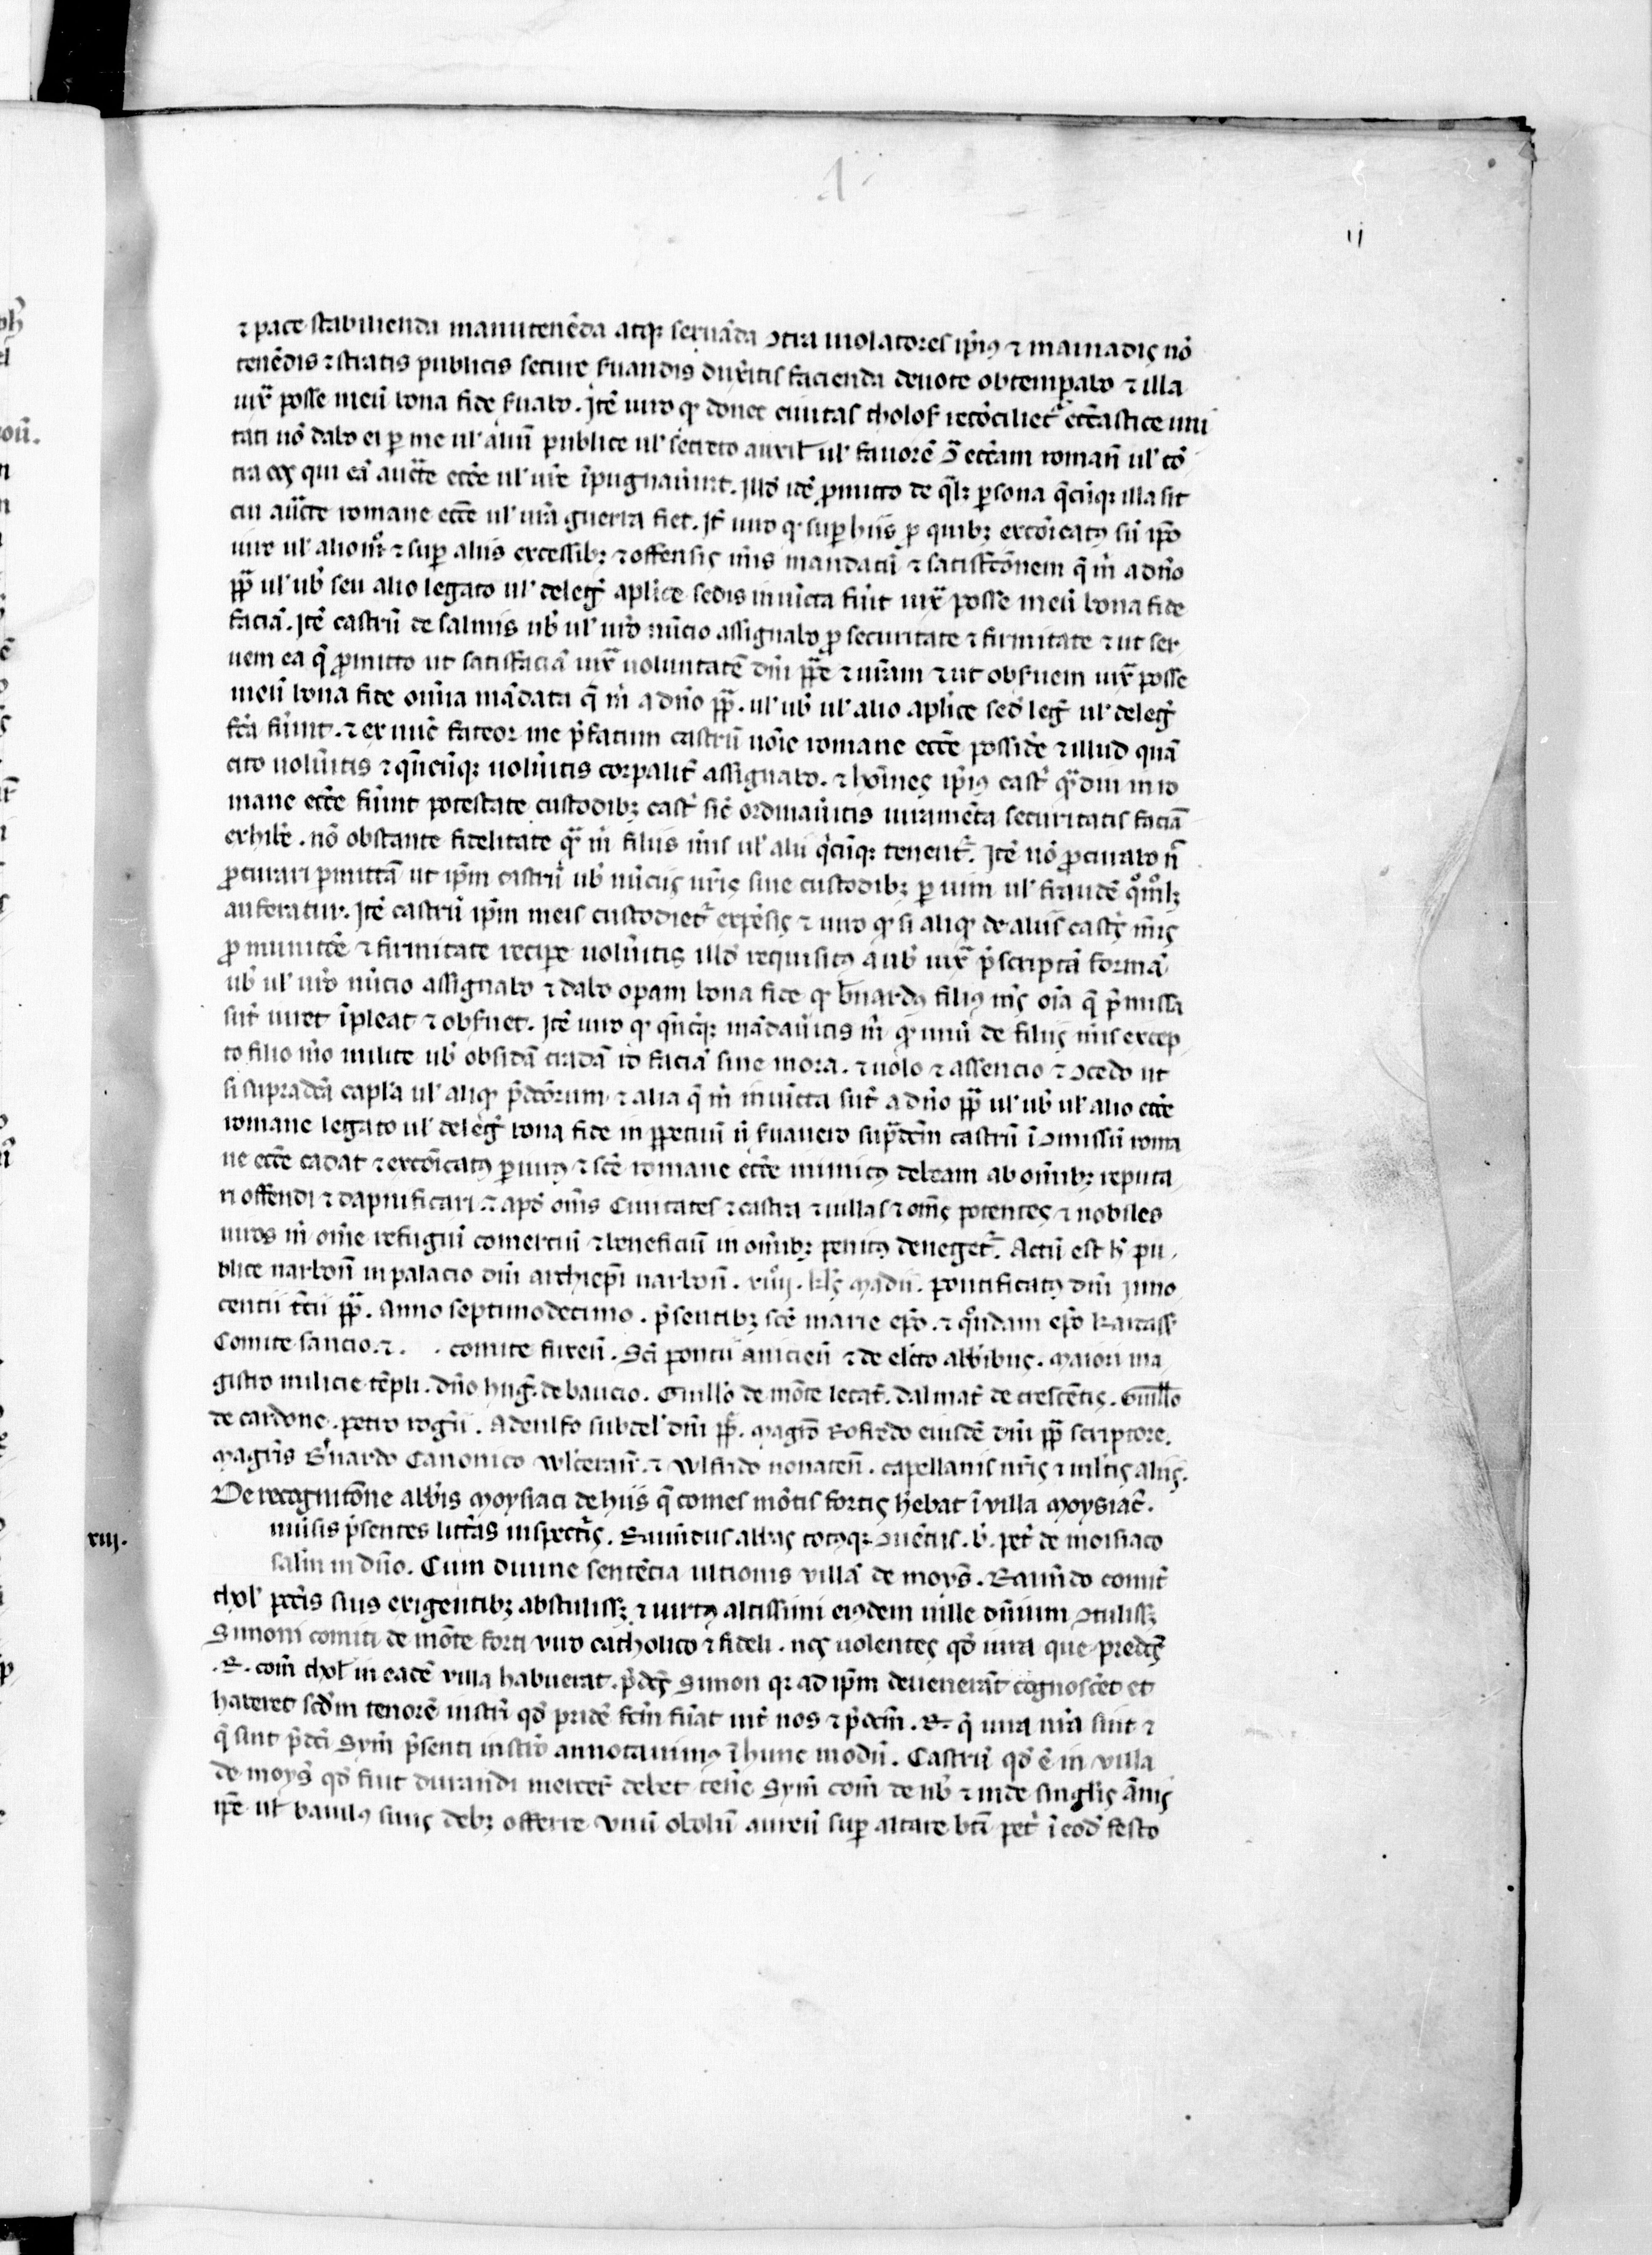 ij
⁊ pace stabilienda manutenēda atq; seruāda ↄtra uiolatores ip̄ius ⁊ mainadiꝫ nō
tenēdis ⁊ stratis publicis secure s̄uandis dux̄itis facienda deuote obtemꝑabo ⁊ illa
iux̄ posse meū bona fide s̄uabo. Itē iuro qꝫ donec ciuitas tholos̄ recōcilietᷣ ecc̄iastice uni
tati nō dabo ei ꝑ me ul' aliū publice ul' secreto auxil̄ ul' fauorē ↄ̄ ecc̄iam romañ ul' cō
tra eoꝝ qui eā auct̄te ecc̄e ul' ur̄e īpugnauīnt. Illd̄ itē ꝓmitto de q̄lꝫ ꝑsona q̄cūq; illa sit
cui auct̄te romane ecc̄e ul' ur̄a guerra fiet. It̄ iuro qꝫ suꝑ hiis ꝓ quibꝫ excōicatꝰ sū ip̄o
iure ul' alio mº ⁊ suꝑ aliis excessibꝫ ⁊ offensiꝫ m̄is mandatū ⁊ satisfc̄onem q̄ m̄ a dn̄o
pp̄ ul' ub̄ seu alio legato ul' deleg̃ aplice sedis iniūcta fūīt iux̄ posse meū bona fide
faciā. Itē castrū de saluis ub̄ ul' ur̄o nūcio assignabo ꝓ securitate ⁊ firmitate ⁊ ut ser
uem ea q̄ ꝓmitto ut satisfaciā iux̄ uoluntatē dn̄i pp̄e ⁊ ur̄am ⁊ ut obs̄uem iux̄ posse
meū bona fide om̄ia mādata q̄ m̄ a dn̄o pp̄. ul' ub̄ ul' alio aplice sed̄ leg̃ ul' deleg̃
fc̄a fūint. ⁊ ex nūc fateor me p̄fatum castrū noīe romane ecc̄e possid̄e ⁊ illud quā
cito uolūitis ⁊ qn̄cūq; uolūitis corꝑalit̄ assignabo. ⁊ hōineꝫ ip̄ius castr̄ q̄diu in ro
mane ecc̄e fūint potestate custodibꝫ castr̄ sic̄ ordinauītis iuramēta securitatis faciā
exhib̄e. nō obstante fidelitate q̄ m̄ filiis m̄is ul' alii q̄cūq; tenentᷣ. Itē nō ꝓcurabo n̄
ꝓcurari ꝑmittā ut ip̄m castrū ub̄ nūciiꝫ ur̄iꝫ siue custodibꝫ ꝑ uim ul' fraudē qºmºlꝫ
auferatur. Itē castrū ip̄m meis custodietᷣ expēsiꝫ ⁊ iuro qꝫ si aliqꝫ de aliis castꝫ m̄iꝫ
ꝓ munitōe ⁊ firmitate reciꝑe uolūitis illd̄ requisitꝰ a ub̄ iux̄ p̄scriptā formā
ub̄ ul' ur̄o nūcio assignabo ⁊ dabo oꝑam bona fide qꝫ B̄nardꝰ filiꝰ m̄ꝫ oīa q̄ p̄missa
sūt iuret īpleat ⁊ obs̄uet. Itē iuro qꝫ qn̄cūq; mādauītis m̄ qꝫ unū de filiiꝫ m̄is excep
to filio m̄o milite ub̄ obsidā tradā id faciā sine mora. ⁊ uolo ⁊ assencio ⁊ ↄcedo ut
si supradc̄a capl̄a ul' aliqꝫ p̄dc̄orum ⁊ alia q̄ m̄ iniūcta sūt a dn̄o pp̄ ul' ub̄ ul' alio ecc̄e
romane legato ul' deleg̃ bona fide in ꝑpetuū n̄ s̄uauero sup̄dc̄m castrū ī ↄmissū roma
ne ecc̄e cadat ⁊ excōicatꝰ ꝑiurꝰ ⁊ sc̄e romane ecc̄e inimicꝰ debeam ab om̄ibꝫ reputa
ri offendi ⁊ dapnificari ⁊ apd̄ om̄is Ciuitates ⁊ castra ⁊ uillas ⁊ om̄ꝫ potenteꝫ ⁊ nobiles
uiros m̄ om̄e refugiū comerciū ⁊ beneficiū in om̄ibꝫ penitꝰ denegetᷣ. Actū est h̄ pu
blice narboñ in palacio dn̄i archiep̄i narboñ. xiiij. kl̄ꝫ Madii. pontificatꝰ dn̄i Inno
centii tc̄ii pp̄. Anno septimodecimo. p̄sentibꝫ sc̄e marie ep̄o. ⁊ qºndam ep̄o karcass̄
Comite sancio. ⁊ . . comite fuxeñ. Sc̄i poncii anicieñ ⁊ de elc̄to abb̄ibuꝫ. Maiori ma
gistro milicie tēpli. dn̄o hug̃. de baucio. Guillo de mōte lecat̄. dalmat̄ de crescētiꝫ. Guillo
de cardone. petro rog̃ii. Adeulfo subdel' dn̄i pp̄. magr̄o Rofrēdo eiusdē dn̄i pp̄ scriptore.
Magr̄is B̄nardo Canonico Wlteran̄. ⁊ Wlfrēdo nouareñ. capellanis ur̄iꝫ ⁊ ml̄tiꝫ aliiꝫ.
De recognitōne abb̄is Moysiaci de hiis q̄ comes mōtis fortiꝫ h̄ebat ī uilla Moysiac̄.
xiij. niuisis p̄sentes litt̄as inspecturꝫ. Raimūdus abbaꝫ totusq; ↄuētus. b̄. pet̄ de moisiaco
salīn in dn̄o. Cum diuine sentēcia ultionis uillā de moys̄. Raimūdo comit̄
thol' pecc̄is suis exigentibꝫ abstulissꝫ ⁊ uirtꝰ altissimi eiꝰdem uille dn̄ium ↄtulissꝫ
Simoni comiti de mōte forti uiro catholico ⁊ fideli. nꝫ uolenteꝫ qd̄ iura que predc̄ꝫ
.R. com̄ thol' in eadē uilla habuerat. p̄dc̄ꝫ Simon qꝫ ad ip̄m deuenerāt cognoscēt et
haberet scd̄m tenorē instrī qd̄ pridē fc̄m fūat int̄ nos ⁊ p̄dc̄m. R. q̄ iura nr̄a sint ⁊
q̄ sint p̄dc̄i Sym̄ p̄senti instrō annotauimꝰ ī hunc modū. Castrū qd̄ ē in uilla
de moys̄ qd̄ fuit durandi mercer̄ debet ten̄e Sym̄ com̄ de nb̄ ⁊ inde singl̄iꝫ āniꝫ
ip̄e ul' baiulꝰ suuꝫ debꝫ offerre unū obolū aureū suꝑ altare bt̄i pet̄ ī eod̄ festo